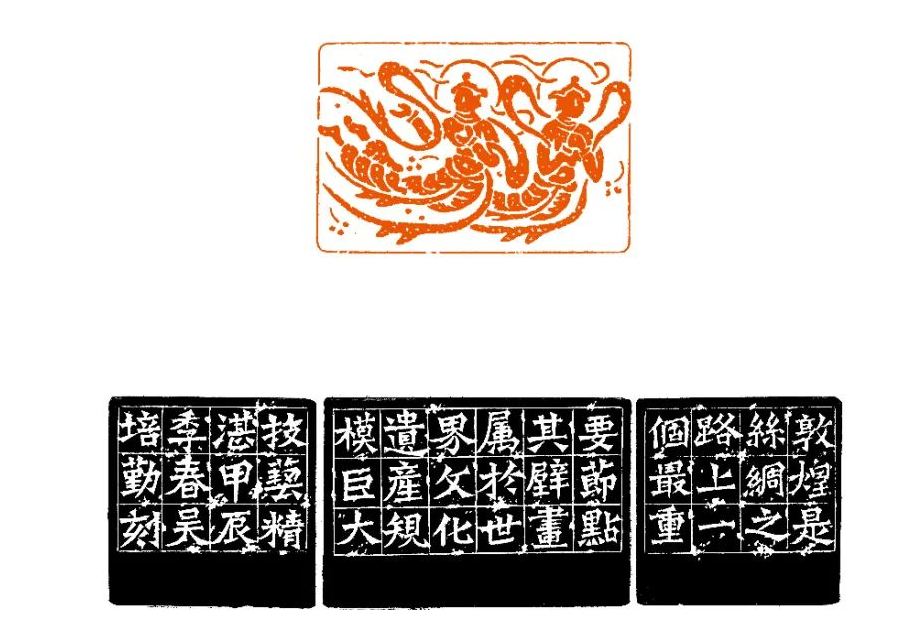 敦煌是
絲綢之
路上一
個最重
要莭點
其壁畫
属於世
界文化
遺產規
模巨大
技藝精
湛甲辰
季春吴
培勤刻